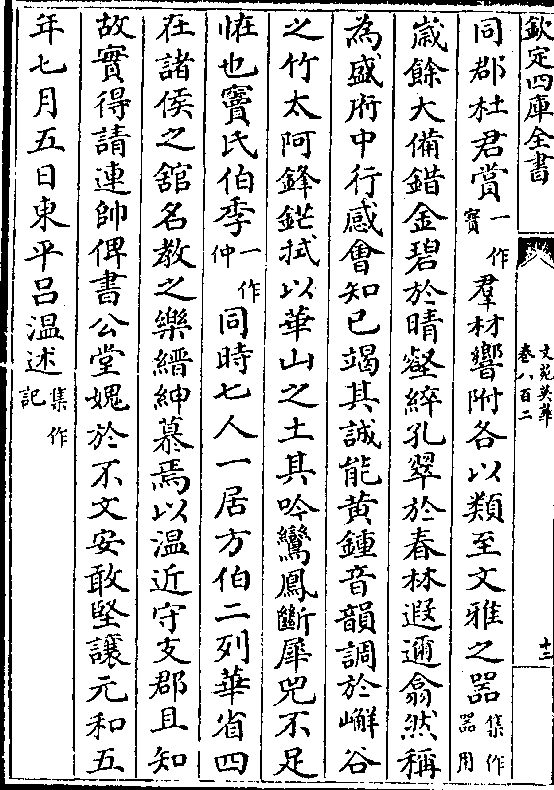 欽定四庫全書
文苑英華
卷八百二
十二
同郡杜君賞一作實羣材響附各以類至文雅之器集作器用
歲餘大備錯金碧於晴壑綷孔翠於春林遐邇翕然稱
為盛府中行感會知已竭其誠能黄鍾音韻調於嶰谷
之竹太阿鋒鋩拭以華山之土其吟鸞鳳斷犀兕不足
恠也竇氏伯季一作仲同時七人一居方伯二列華省四
在諸侯之舘名教之樂縉紳慕焉以温近守支郡且知
故實得請連帥俾書公堂媿於不文安敢堅讓元和五
年七月五日東平呂温述集作記